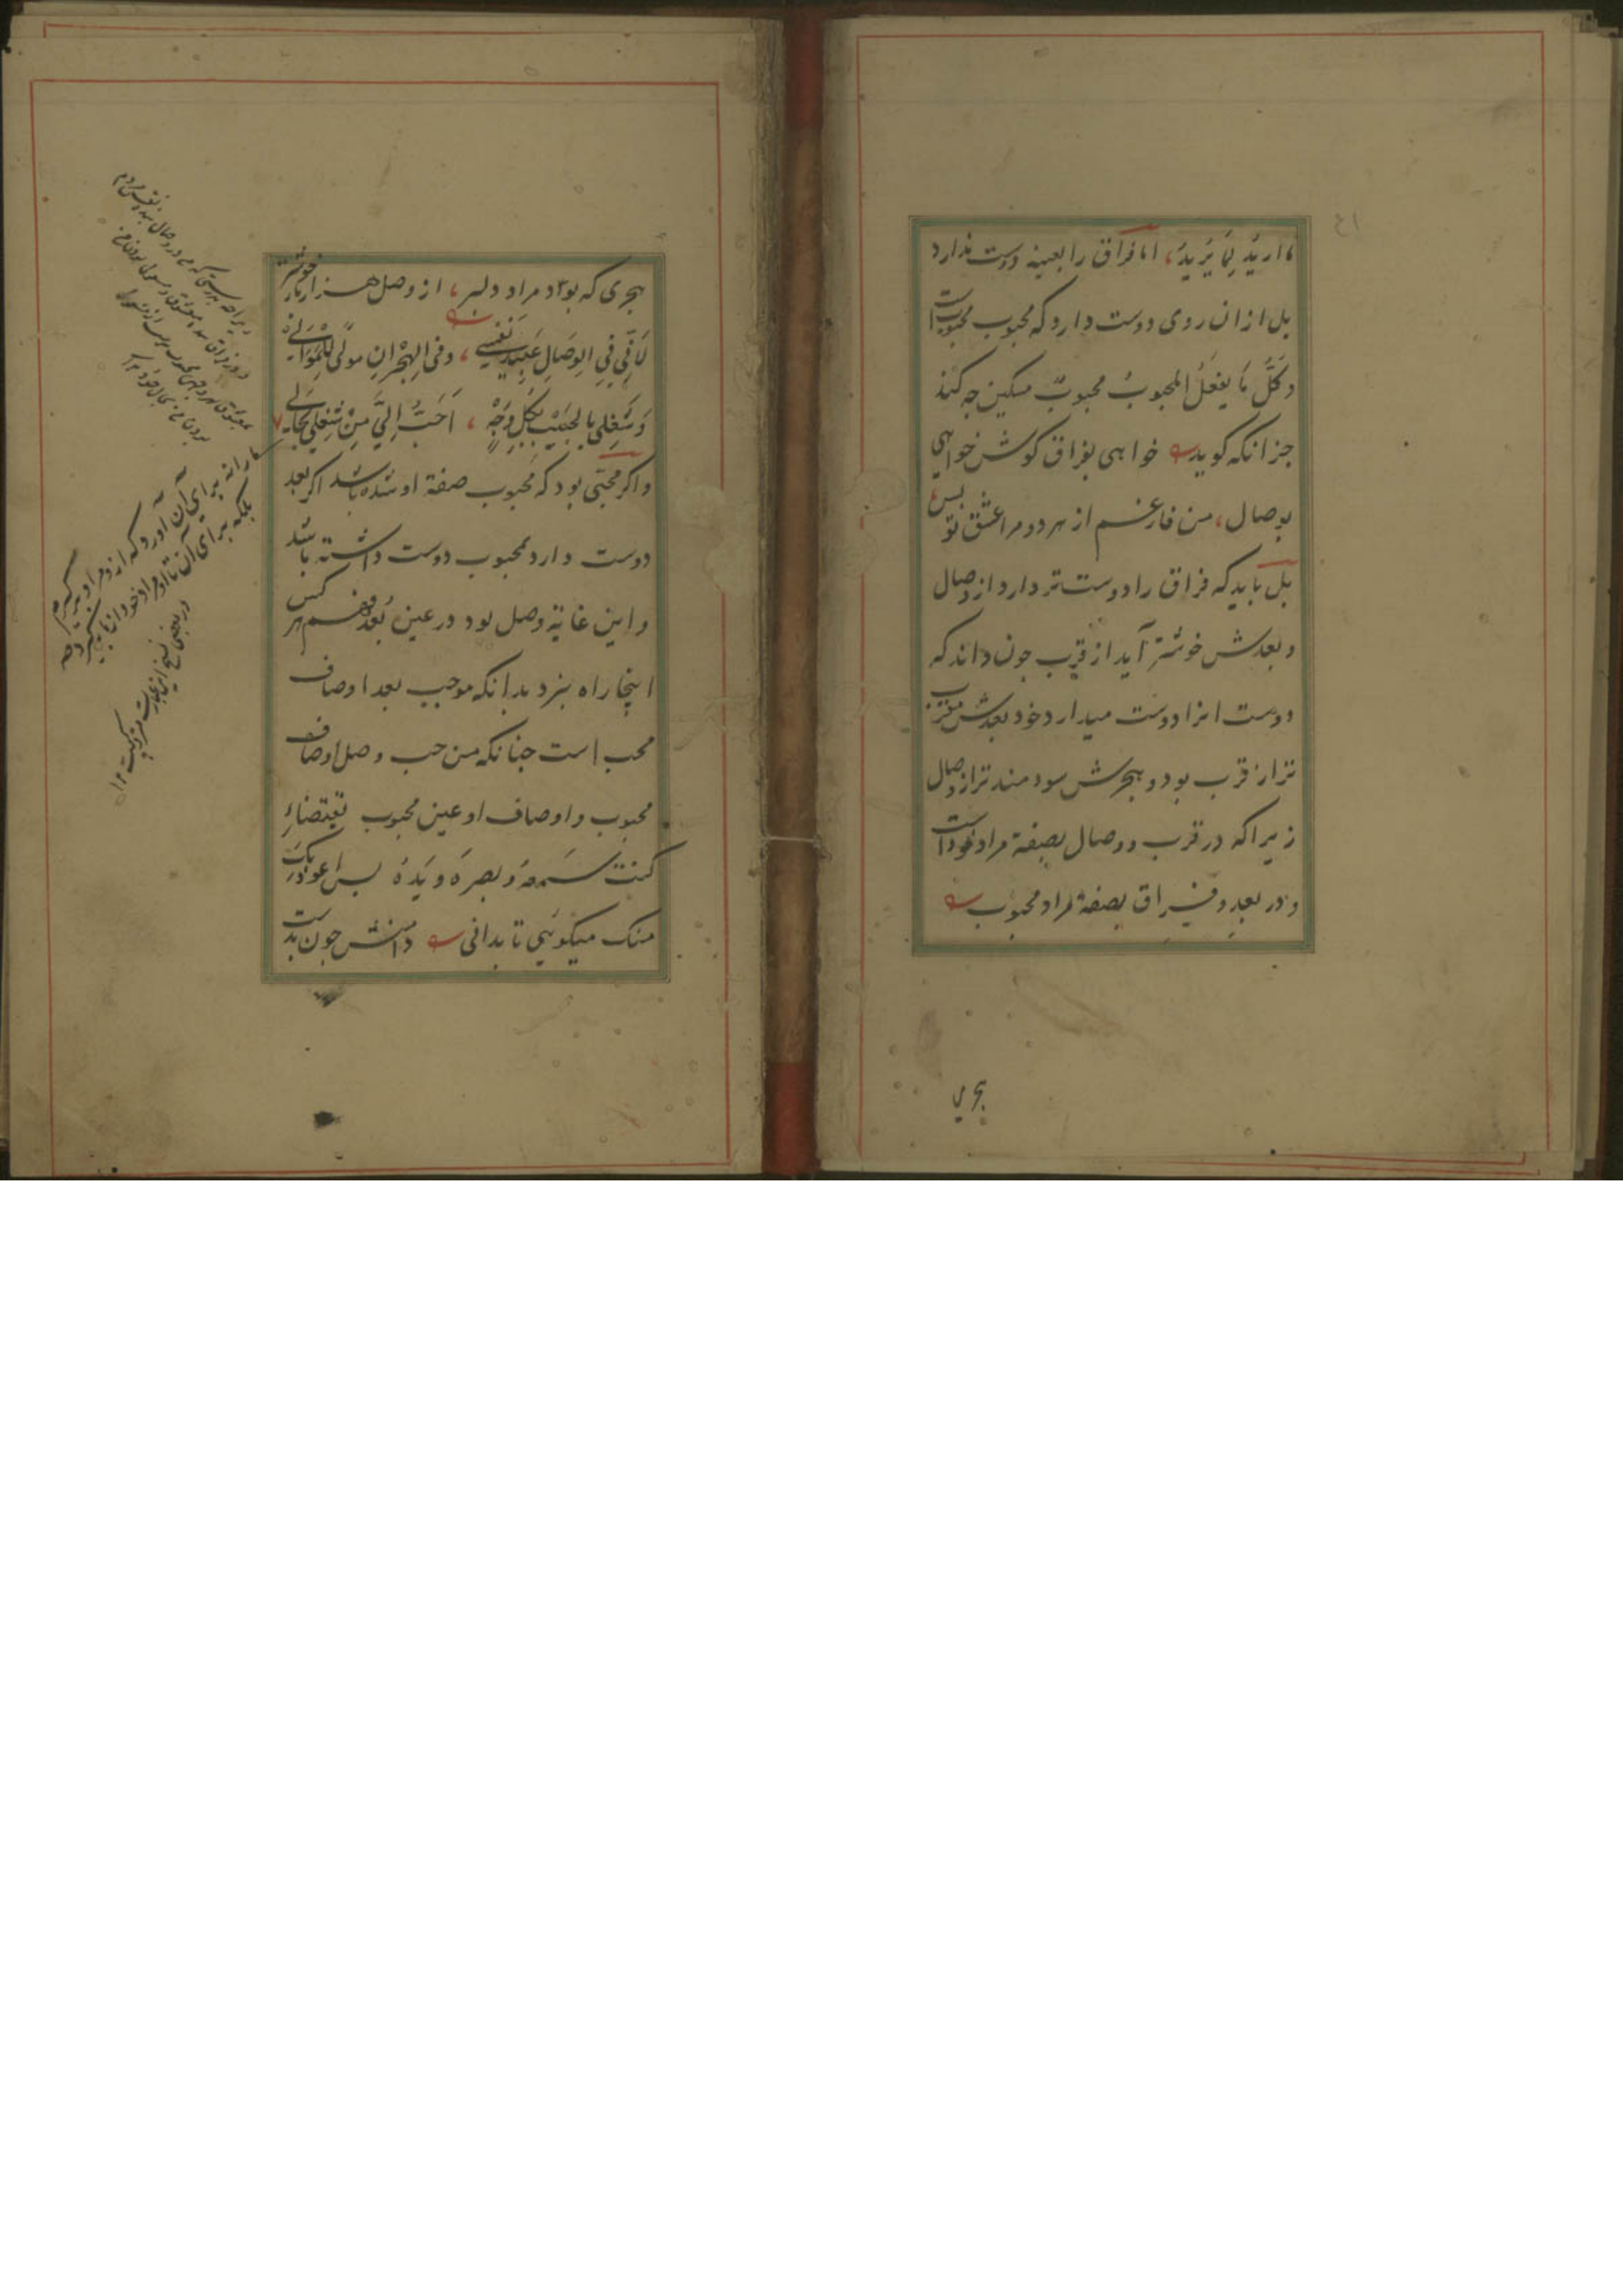 ما ارید لِمَا یُرِیدُ، اما فراق را بعینه دوست ندارد
بل ازان روی دوست دارد که محبوب محبوبست
وَکُلُّ مَا یَفعَلُ المحبوبُ محبوبٌ مسکین چه کند
جز انکه کوید خواهی بفراق کوش خواهی
بوصال، من فارغم از هر دو مرا عشق تو بس
بل باید که فراق را دوست تر دارد از وصال
و بعدش خوشتر آید از قرب جون داند که
دوست انرا دوست میدارد خود بعدش مقرب
تر از قرب بود و هجرش سودمند تر از وصال
زیرا که در قرب و وصال بصفة مراد خود است
و در بعد و فراق بصفة مراد محبوب
هجری
هجری که بود مراد دلبر، از وصل هزار بار خوشتر
لِاَنّی فِی الوِصَالِ عُبَیدُ نَفسِی، وفی الهِجرَانِ مولًی لِلمَوَالِی
وَشُغلِی بالحَبِیبِ بِکُلِّ وَجهٍ، اَحَبُّ اِلَیَّ مِن شُغلِی بحَالِی
واکر محبّی بود که محبوب صفة او شده باشد اکر بعد
دوست دارد محبوب دوست داشته باشد
و این غایة وصل بود در عین بُعد و فهم هر کس
اینجا راه نبرد بدانکه موجب بعد اوصاف
محب است جنانکه من حب وصل اوصاف
محبوب و اوصاف او عین محبوب بمقتضاء
کنت سَمعَهُ و بصرَه و یَدَهُ بس اعوذ بک
منک میکوئی تا بدانی دامنش جون بدست
ما را نه برای آن آورد که ازو مراد بر کیریم
بلکه برای آن تا او مراد خود از ما
در بعضی نسخ این عبارت